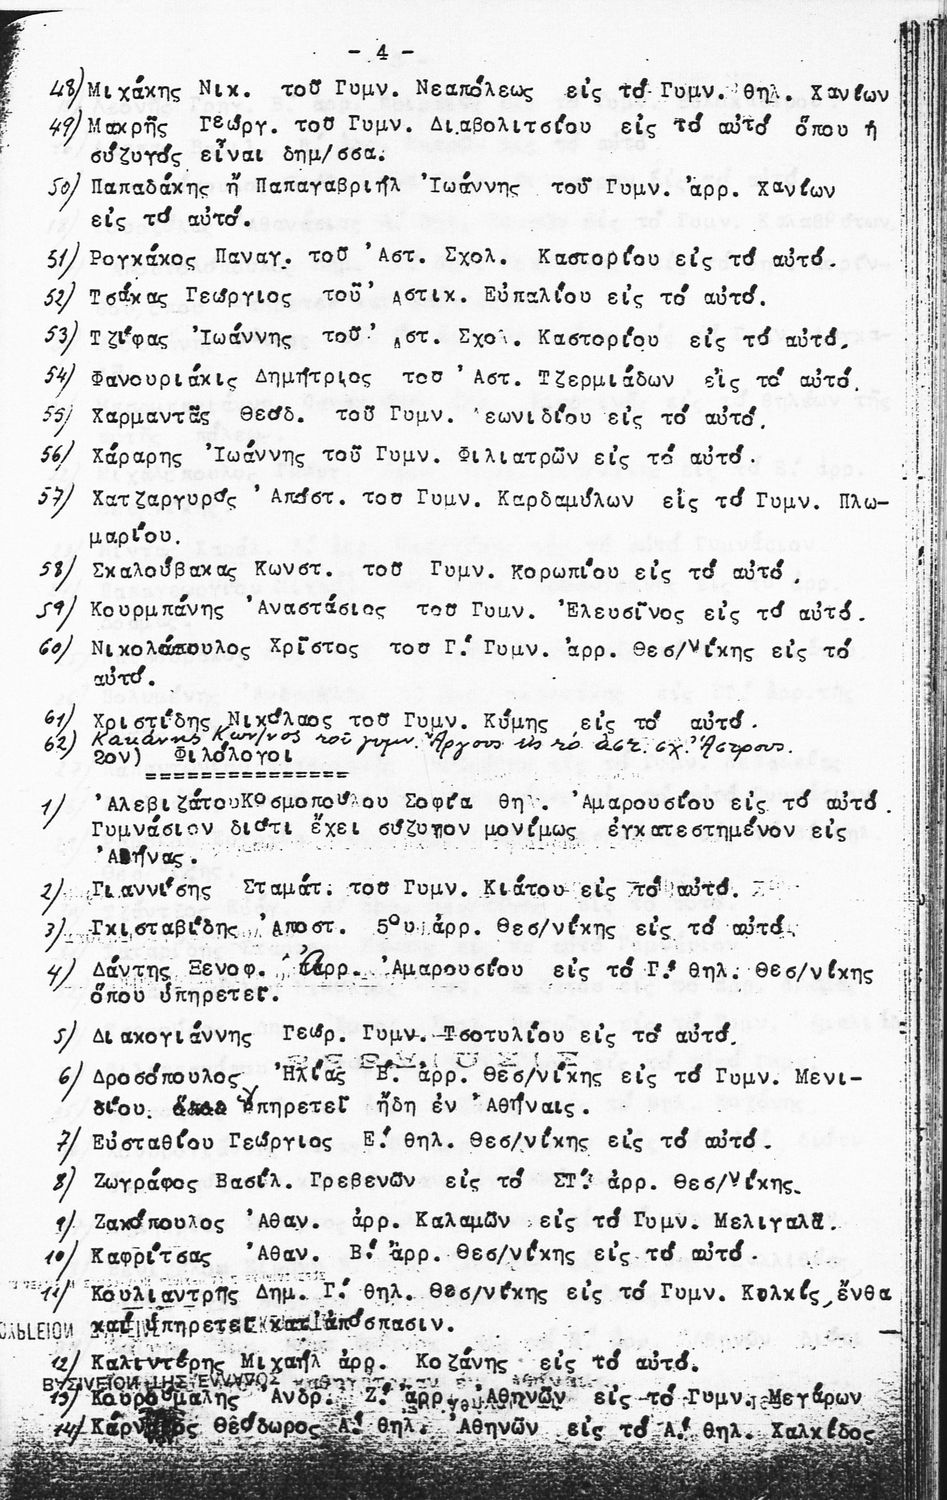 - 4 -
48) Μιχάκης Νικ. τοῦ Γυμν. Νεαπόλεως εἰς τό Γυμν. θηλ. Χανίων
49) Μακρῆς Γεώργ. τοῦ Γυμν. Διαβολιτσίου εἰς τό αὐτό ὅπου ἡ
σύζυγός εἶναι δημ/σσα.
50) Παπαδάκης ἤ Παπαγαβριήλ Ἰωάννης τοῦ Γυμν. ἀρρ. Χανίων
εἰς τό αὐτό.
51) Ρογκάκος Παναγ. τοῦ Ἀστ. Σχολ. Καστορίου εἰς τό αὐτό.
52) Τσάκας Γεώργιος τοῦ Ἀστικ. Εὐπαλίου εἰς τό αὐτό.
53) Τζίφας Ἰωάννης τοῦ Ἀστ. Σχολ. Καστορίου εἰς τό αὐτό.
54) Φανουριάκις Δημήτριος τοῦ Ἀστ. Τζερμιάδων εἰς τό αὐτό.
55) Χαρμαντᾶς Θεόδ. τοῦ Γυμν. εωνιδίου εἰς τό αὐτό.
56) Χάραρης Ἰωάννης τοῦ Γυμν. Φιλιατρῶν εἰς τό αὐτό.
57) Χατζαργυρός Ἀπόστ. τοῦ Γυμν. Καρδαμύλων εἰς τό Γυμν. Πλω-
μαρίου.
58) Σκαλούβακας Κωνστ. τοῦ Γυμν. Κορωπίου εἰς τό αὐτό.
59) Κουρμπάνης Ἀναστάσιος τοῦ Γυμν. Ἐλευσῖνος εἰς τό αὐτό.
60) Νικολόπουλος Χρῖστος τοῦ Γ΄ Γυμν. ἀρρ. Θεσ/νίκης εἰς τό
αὐτό.
61) Χριστίδης Νικόλαος τοῦ Γυμν. Κύμης εἰς τό αὐτό.
62) Κακάνης Κων/νος τοῦ γυμν. Ἄργους εἰς τό ἀστ. σχ. Ἄστρους.
2ον) Φιλόλογοι
================
1) Ἀλεβιζάτου Κοσμοπούλου Σοφία θηλ. Ἀμαρουσίου εἰς τό αὐτό
Γυμνάσιον διότι ἔχει σύζυγον μονίμως ἐγκατεστημένον εἰς
Ἀθήνας.
2) Γιαννίσης Σταμάτ. τοῦ Γυμν. Κιάτου εἰς τό αὐτό.
3) Γκισταβίδης Ἀποστ. 5ου ἀρρ. Θεσ/νίκης εἰς τό αὐτό.
4) Δάντης Ξενοφ. ἀρρ. Ἀμαρουσίου εἰς τό Γ΄ θηλ. Θεσ/νίκης
ὅπου ὑπηρετεῖ.
5) Διακογιάννης Γεώρ. Γυμν. Τσοτυλίου εἰς τό αὐτό.
6) Δροσόπουλος Ἠλίας Β΄ ἀρρ. Θεσ/νίκης εἰς τό Γυμν. Μενι-
δίου. ὑπηρετεῖ ἤδη ἐν Ἀθήναις.
7) Εὐσταθίου Γεώργιος Ε΄ θηλ. Θεσ/νίκης εἰς τό αὐτό.
8) Ζωγράφος Βασίλ. Γρεβενῶν εἰς τό ΣΤ΄ ἀρρ. Θεσ/νίκης.
9) Ζακόπουλος Ἀθαν. ἀρρ. Καλαμῶν εἰς τό Γυμν. Μελιγαλᾶ.
10) Καφρίτσας Ἀθαν. Β΄ ἀρρ. Θεσ/νίκης εἰς τό αὐτό.
11) Κουλιαντρῆς Δημ. Γ΄ θηλ. Θεσ/νίκης εἰς τό Γυμν. Κιλκίς, ἔνθα
καί ὑπηρετεῖ κατ' ἀπόσπασιν.
12) Καλιντέρης Μιχαήλ ἀρρ. Κοζάνης εἰς τό αὐτό.
13) Καουρομάλης Ἀνδρ. Ζ΄ ἀρρ. Ἀθηνῶν εἰς τό Γυμν. Μεγάρων
14) Θεόδωρος Α΄ θηλ. Ἀθηνῶν εἰς τό Α΄ θηλ. Χαλκίδος